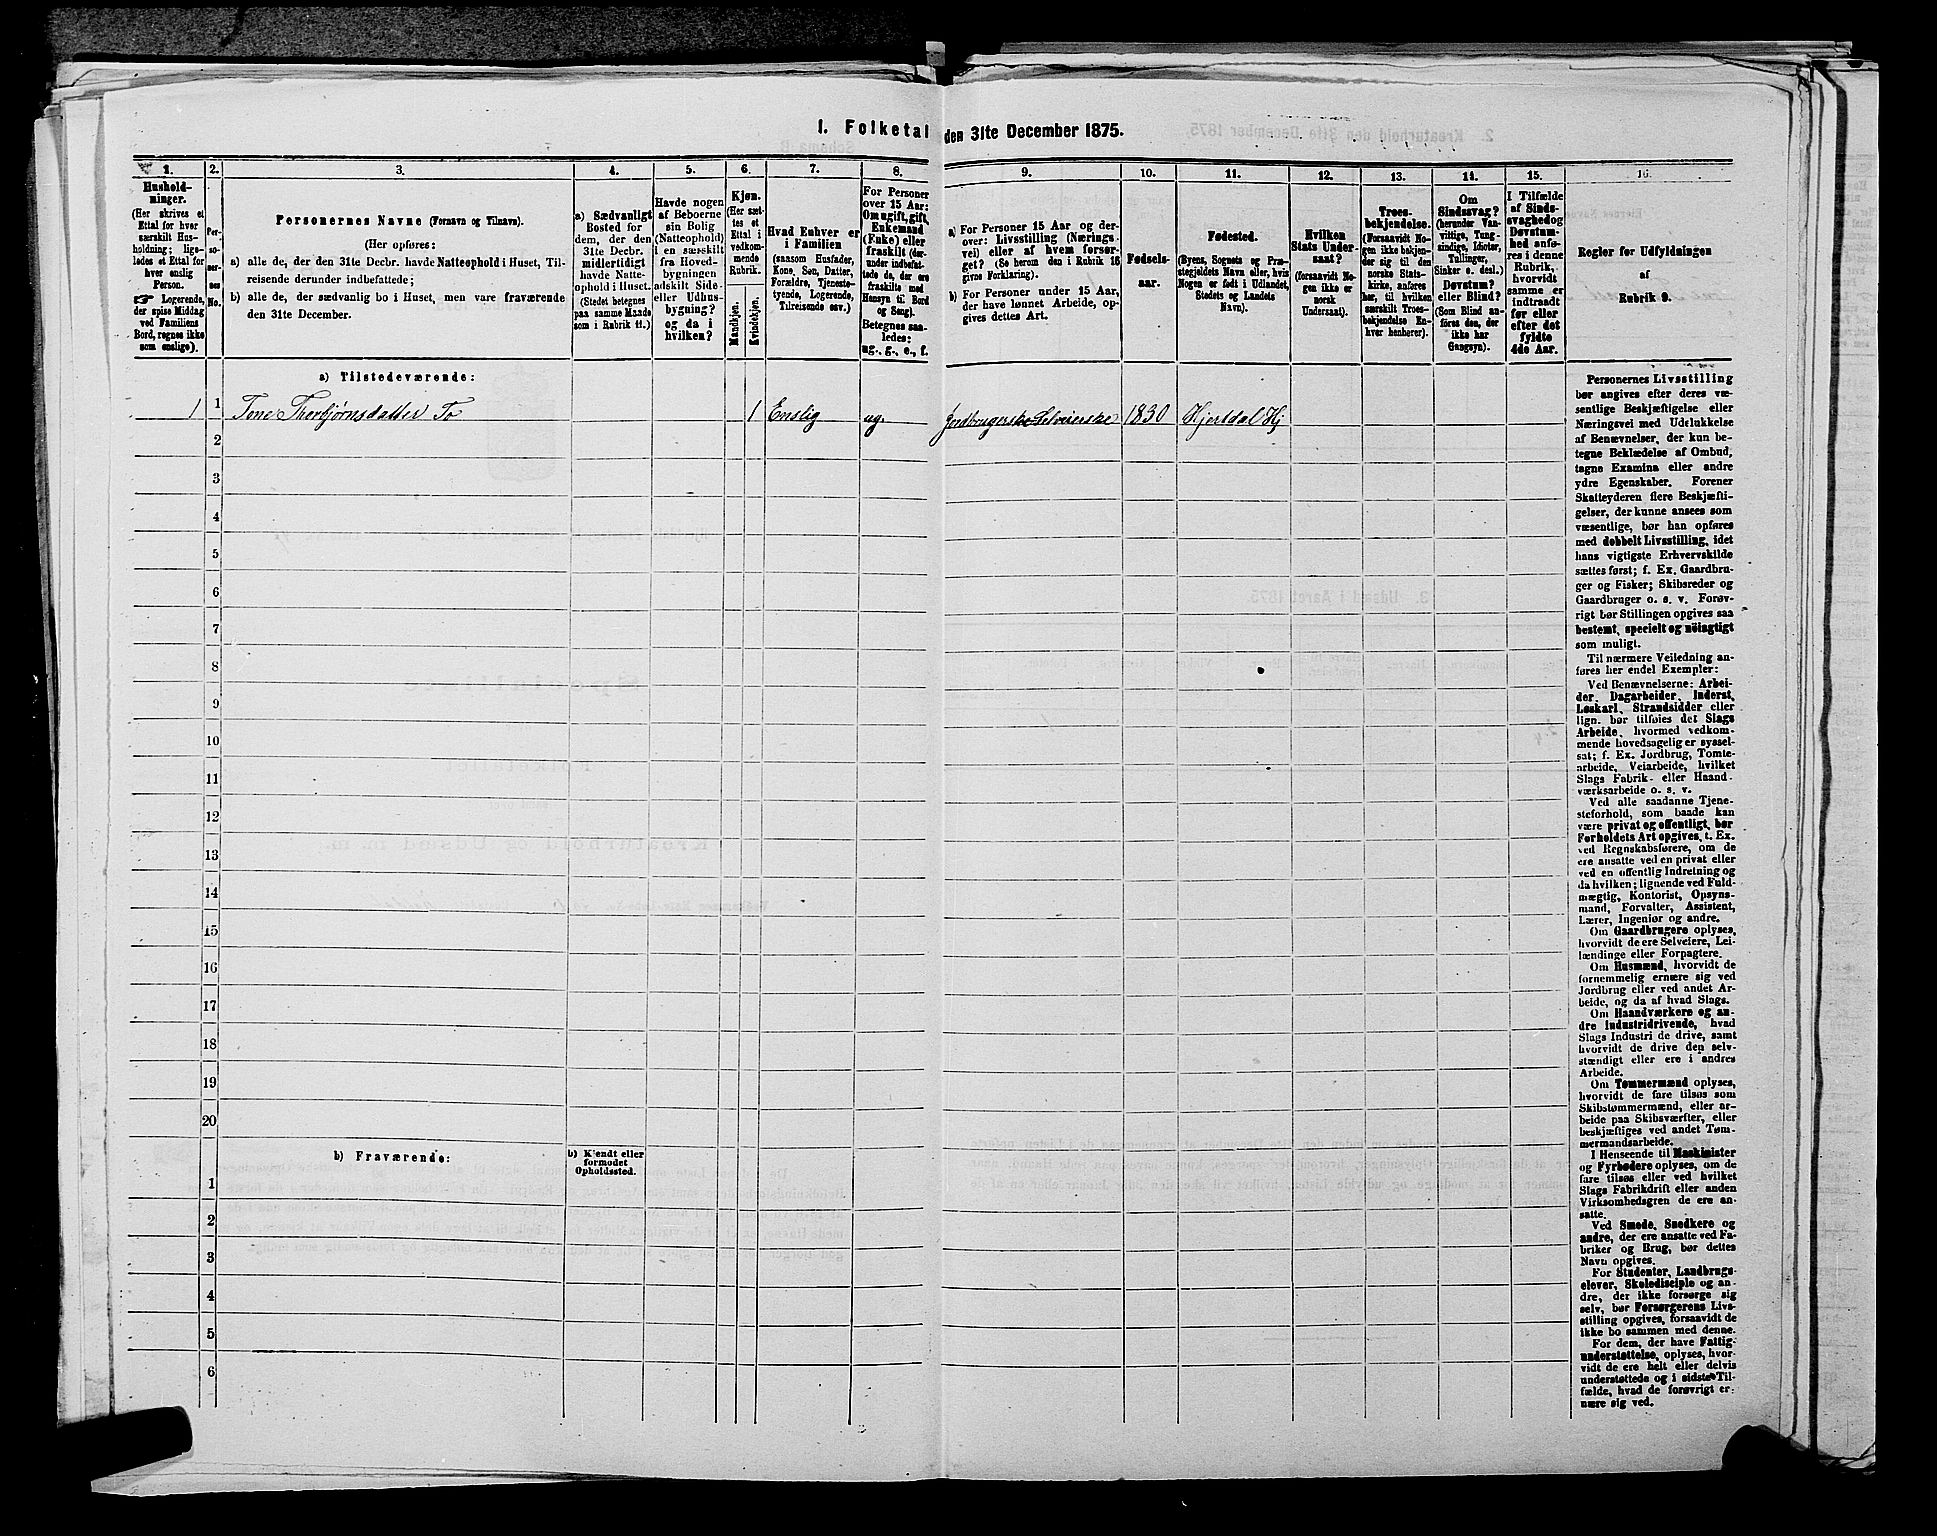 1. Folketal den 31te December 1875.
1.
2.
3.
4.
5.
6.
7.
8.
9.
10.
11.
12.
13.
14.
15.
16.
Hushold-
ninger.
(Her skrives et
Ettal for hver
særskilt Hus-
holdning; lige-
ledes et Ettal for
hver enslig
Person.
☞ Logerende,
der spise Middag
ved Familiens
Bord, regnes ikke
som enslige).
Per-
so-
ner-
nes
No.
Personernes Navne (Fornavn og Tilnavn).
(Her opføres:
a) alle de, der den 31te Decbr. havde Natteophold i Huset, Til-
reisende derunder indbefattede;
b) alle de, der sædvanlig bo i Huset, men vare fraværende
den 31te December.
a) Sædvanligt
Bosted for
dem, der den
31te Decbr.
midlertidigt
havde Natte-
ophold i Huset.
(Stedet betegnes
paa samme Maade
som i Rubrik 11.)
Havde nogen
af Beboerne
sin Bolig
(Natteophold)
i en særskilt
fra Hoved-
bygningen
adskilt Side-
eller Udhus-
bygning?
og da i
hvilken?
Kjøn.
(Her sæt-
tes et
Ettal i
vedkom-
mende
Rubrik.
Mandkjøn.
Kvindekjøn.
Hvad Enhver er
i Familien
(saasom Husfader,
Kone, Søn, Datter,
Forældre, Tjeneste-
tyende, Logerende,
Tilreisende osv.)
For Personer
over 15 Aar:
Om ugift, gift,
Enkemand
(Enke) eller
fraskilt (der-
under indbefat-
tede de, der ere
fraskilte med
Hensyn til Bord
og Seng).
Betegnes saa-
ledes:
ug., g., e., f.
a) For Personer 15 Aar og der-
over: Livsstilling (Nærings-
vei) eller af hvem forsør-
get? (Se herom den i Rubrik 16
givne Forklaring).
b) For Personer under 15 Aar,
der have lønnet Arbeide, op-
gives dettes Art.
Fødsels-
aar.
Fødested.
(Byens, Sognets og Præ-
stegjeldets Navn eller, hvis
Nogen er født i Udlandet,
Stedets og Landets
Navn).
Hvilken
Stats Under-
saat?
(forsaavidt No-
gen ikke er
norsk
Undersaat).
Troes-
bekjendelse.
(Forsaavidt No-
gen ikke bekjen-
der sig til den
norske Stats-
kirke, anføres
her, til hvilken
særskilt Troes-
bekjendelse En-
hver henhører).
Om
Sindssvag?
(herunder Van-
vittige, Tung-
sindige, Idioter,
Tullinger,
Sinker o. desl.)
Døvstum?
eller Blind?
(Som Blind an-
føres den, der
ikke har
Gangsyn).
I Tilfælde
af Sinds-
svaghed og
Døvstum-
hed anfø-
res i denne
Rubrik,
hvorvidt
samme er
indtraadt
før eller
efter det
fyldte
4de Aar.
Regler for Udfyldningen
af
Rubrik 9.
a) Tilstedeværende:
1 1 Tone Thorbjørnsdatter To 1 Enslig ug. Jordbrugerske Selveierske 1830 Hjertdal Hj
2
3
4
5
6
7
8
9
10
11
12
13
14
15
16
17
18
19
20
b) Fraværende:
b) Kjendt eller
formodet
Opholdssted.
1
2
3
4
5
6
Personernes Livsstilling
bør angives efter deres væ-
sentlige Beskjæftigelse eller
Næringsvei med Udelukkelse
af Benævnelser, der kun be-
tegne Beklædelse af Ombud,
tagne Examina eller andre
ydre Egenskaber. Forener
Skatteyderen flere Beskjæfti-
gelser, der kunne ansees som
væsentlige, bør han opføres
med dobbelt Livsstilling, idet
hans vigtigste Erhvervskilde
sættes først; f. Ex. Gaardbru-
ger og Fisker; Skibsreder og
Gaardbruger o. s. v. Forøv-
rigt bør Stillingen opgives saa
bestemt, specielt og nöiagtigt
som muligt.
Til nærmere Veiledning an-
føres her endel Exempler:
Ved Benævnelserne: Arbei-
der, Dagarbeider, Inderst,
Løskarl, Strandsidder eller
lign. bør tilføies det Slags
Arbeide, hvormed vedkom-
mende hovedsagelig er syssel-
sat; f. Ex. Jordbrug, Tomte-
arbeide, Veiarbeide, hvilket
Slags Fabrik- eller Haand-
værksarbeide o. s. v.
Ved alle saadanne Tjene-
steforhold, som baade kan
være privat og offentligt, bør
Forholdets Art opgives, t. Ex.
ved Regnskabsførere, om de
ere ansatte ved en privat eller
ved en offentlig Indretning og
da hvilken; lignende ved Fuld-
mægtig, Kontorist, Opsyns-
mand, Forvalter, Assistent,
Lærer, Ingeniør og andre.
Om Gaardbrugere oplyses,
hvorvidt de ere Selveiere, Lei-
lændinge eller Forpagtere.
Om Husmænd, hvorvidt de
fornemmelig ernære sig ved
Jordbrug eller ved andet Ar-
beide, og da af hvad Slags.
Om Haandværkere og an-
dre Industridrivende, hvad
Slags Industri de drive, samt
hvorvidt de drive den selv-
stændigt eller ere i andres
Arbeide.
Om Tømmermænd oplyses,
hvorvidt de fare tilsøs som
Skibstømmermænd, eller ar-
beide paa Skibsværfter, eller
beskjæftiges ved andet Tøm-
mermandsarbeide.
I Henseende til Maskinister
og Fyrbødere oplyses, om de
fare tilsøs eller ved hvilket
Slags Fabrikdrift eller anden
Virksomhedsgren de ere an-
satte.
Ved Smede, Snedkere og
andre, der ere ansatte ved Fa-
briker og Brug, bør dettes
Navn opgives.
For Studenter, Landbrugs-
elever, Skoledisciple og an-
dre, der ikke forsørge sig
selv, bør Forsørgerens Livs-
stilling opgives, forsaavidt de
ikke bo sammen med denne.
For dem, der have Fattig-
understøttelse, oplyses, hvor-
vidt de ere helt eller delvis
understøttede og i sidste Til-
fælde, hvad de forøvrigt er-
nære sig ved.